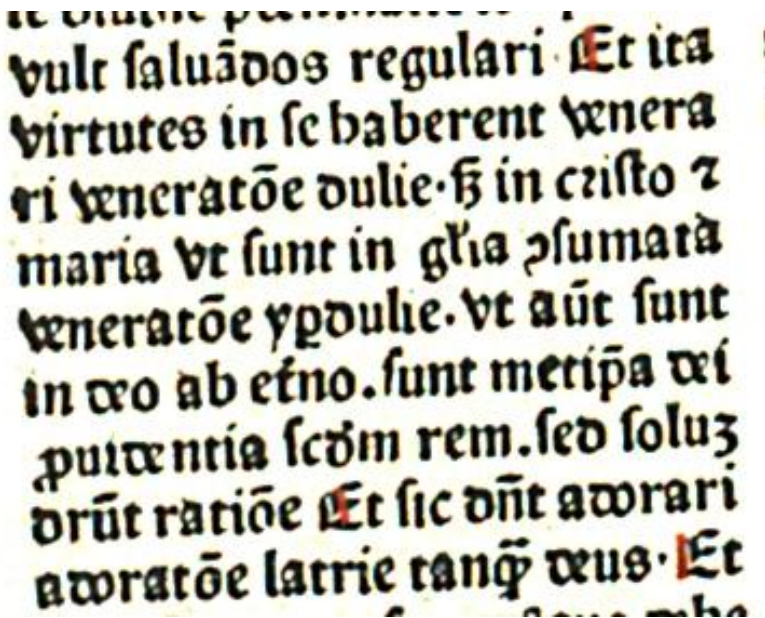 vult ſaluãdos regulari · Et ita
virtutes in ſe haberent venera
ri veneratõe dulie · ſꝫ in criſto ⁊
maria vt ſunt in gl'ia ꝯſumata
veneratõe yꝑdulie. vt aũt ſunt
in deo ab et'no. ſunt metip̃a dei
ꝓuidentia ſcd'm rem. ſed ſoluꝫ
drũt ratiõe Et ſic dñt adorari
adoratõe latrie tanq̃ deus · Et